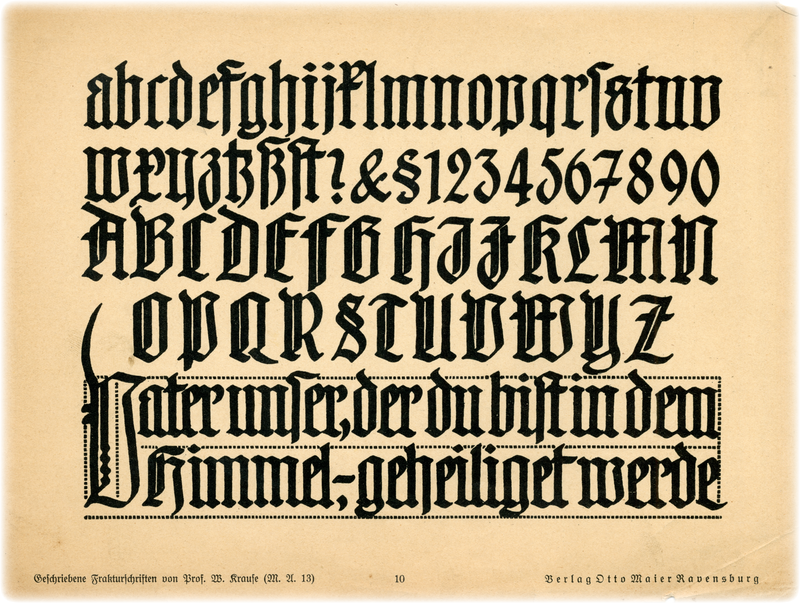 abcdefghijklmnopqrſstuv
wxyztzßſt?&§1234567890
ABCDEFGHIJKLMN
OPQRSTUVWYZ
Vater unſer, der du biſt in dem
Himmel,-geheiliget werde
Geſchriebene Frakturſchriften von Prof. W. Krauſe (M. A. 13) 10 Verlag Otto Maier Ravensburg